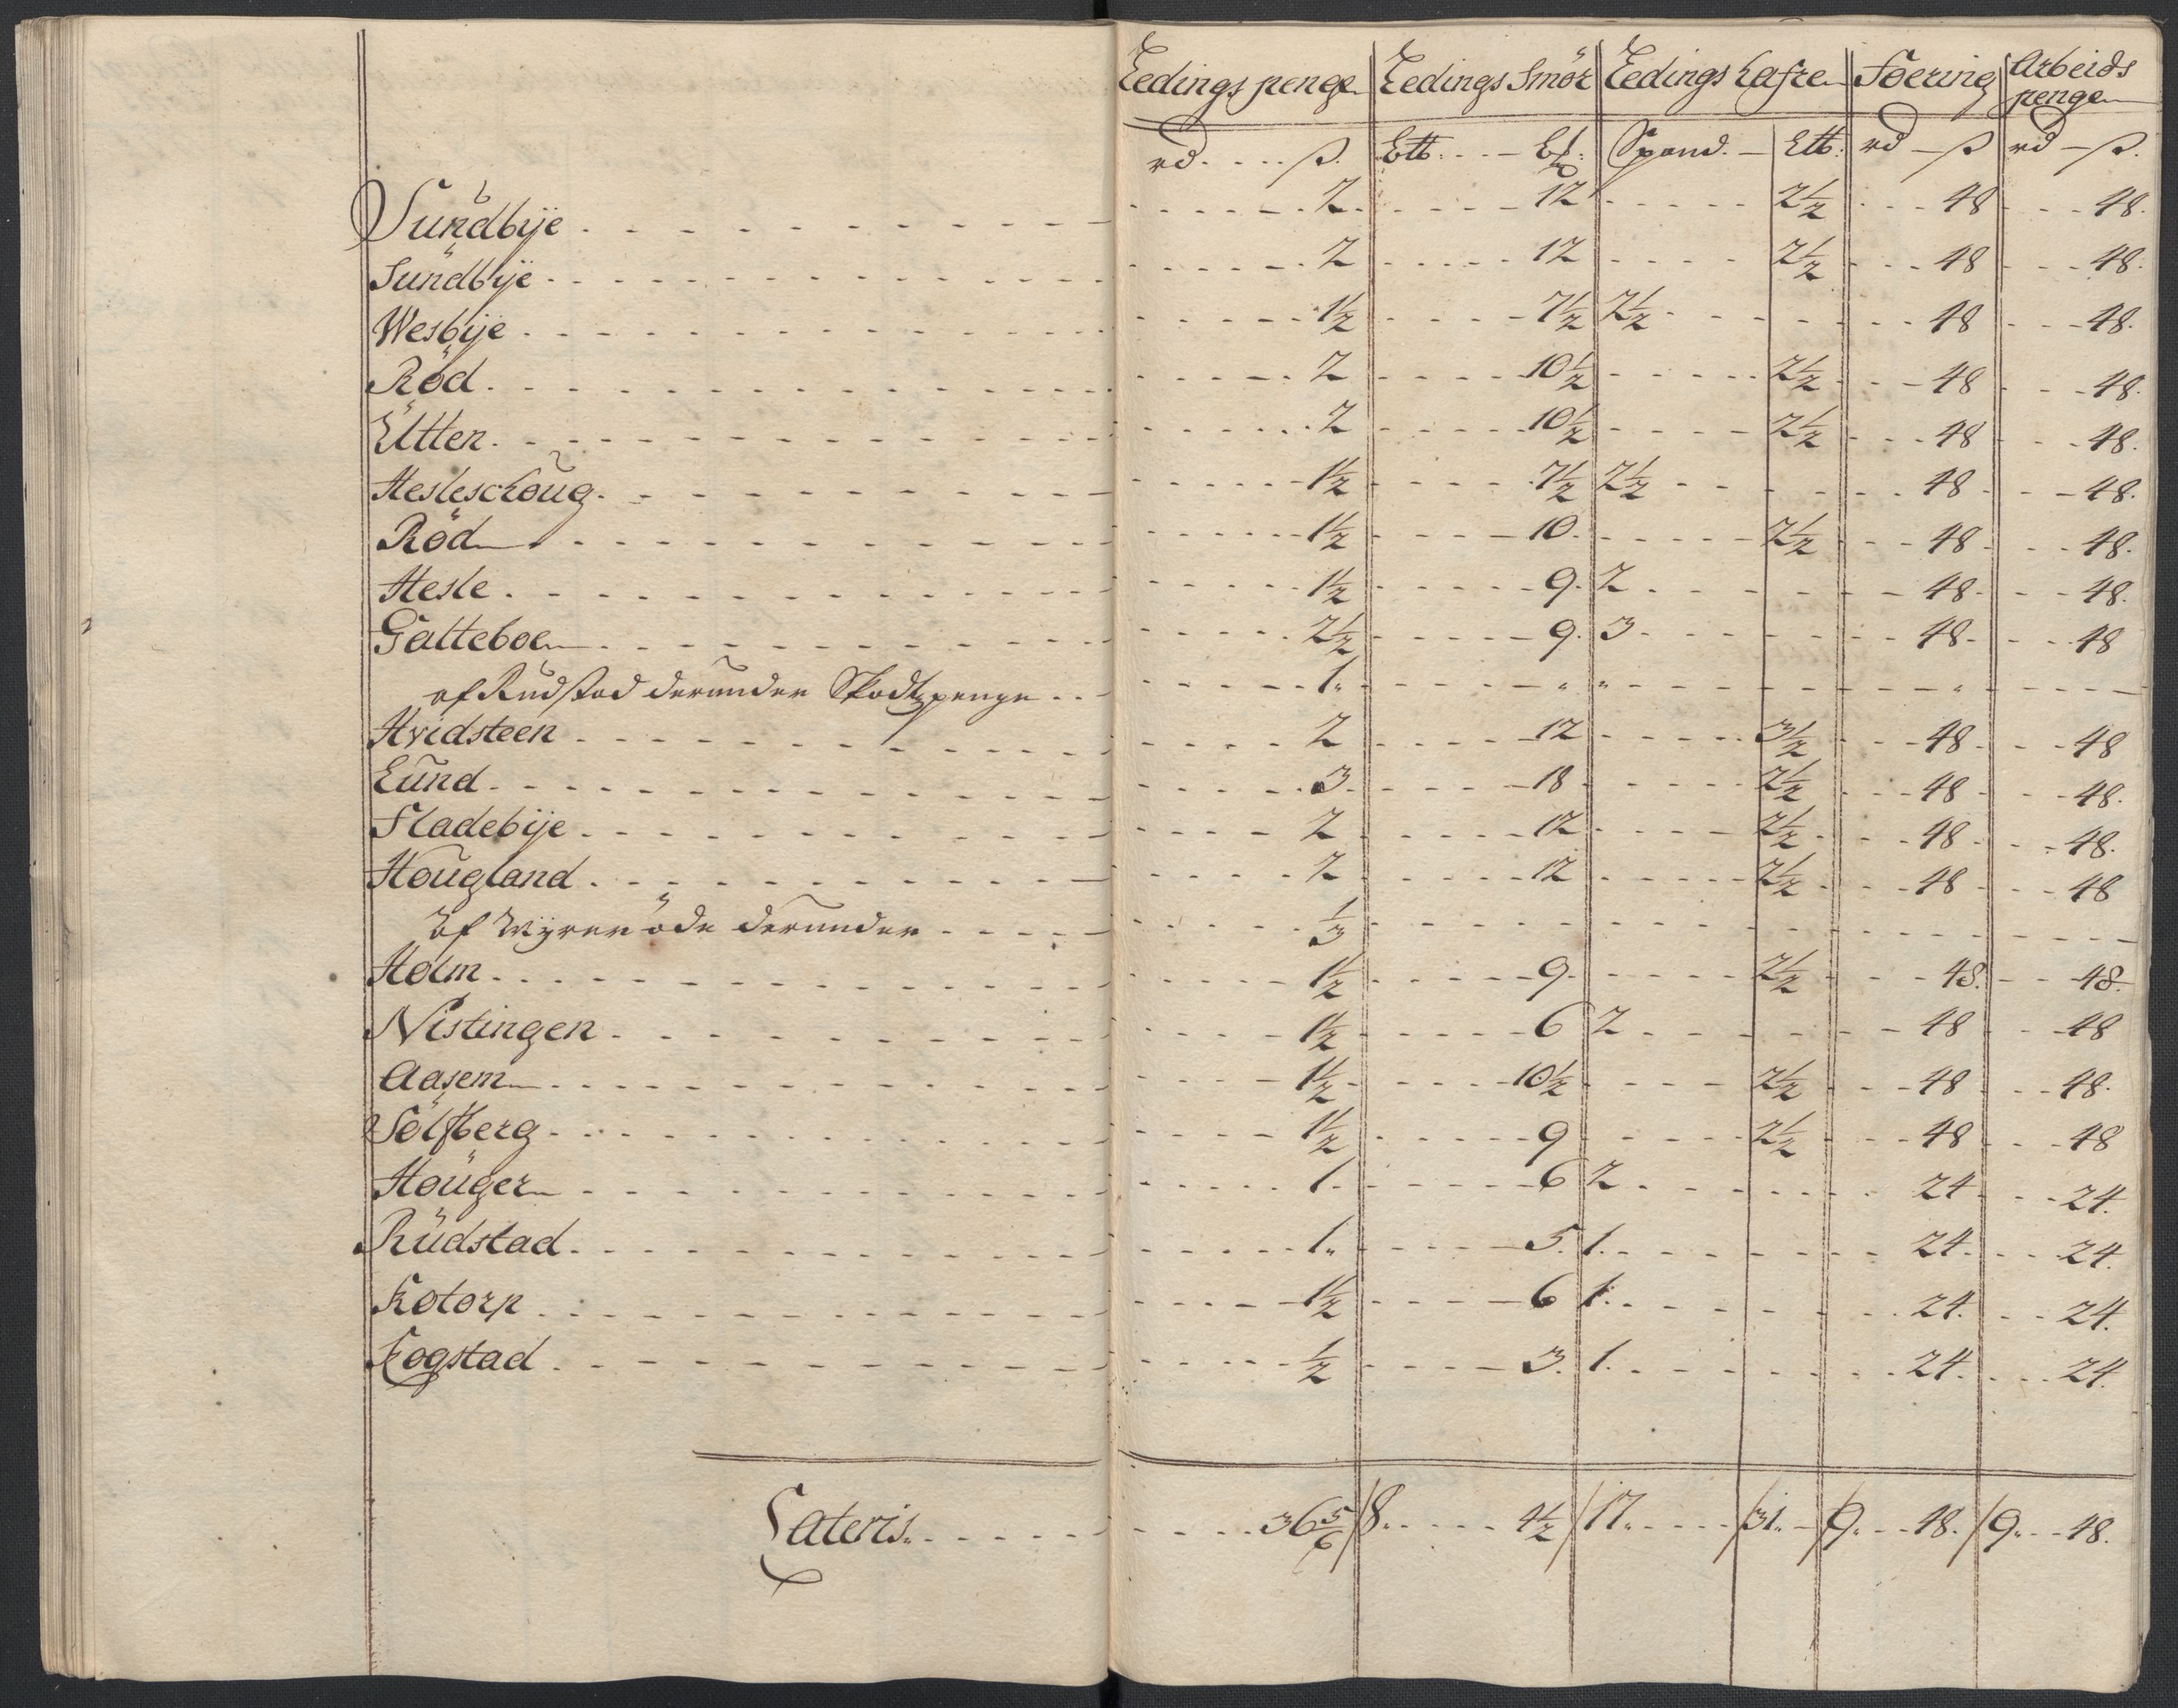 Leedings penge Leedings Smör Leedings hafre Foering Arbeids penge
rd. ß. Lꝉb. Lꝉ. Spand. Lꝉb. rd ß rd ß.
Sundbÿe 2. 12 2½ 48 48.
Sundbÿe 2 12 2½ 48 48.
Wesbÿe 1½ 7½ 2½ 48 48.
Röd 2 10½ 2½ 48 48.
Utten 2 10½ 2½ 48 48.
Hesleschoug 1½ 7½ 2½ 48 48.
Röd 1½ 10. 2½ 48 48.
Hesle 1½ 9. 2 48 48.
Galteboe 2½ 9. 3 48 48
af Rudstad derunder Skodtzpenge 1.
Hvidsteen 2 12 3½ 48 48
Lund 3. 18 2½ 48 48.
Fladebÿe 2 12 2½ 48 48.
Hougland 2 12 2½ 48 48
Af Wÿrer öde derunder ⅓
Holm 1½ 9 2½ 48. 48.
Nistingen 1½ 6 2 48 48
Aasem 1½ 10½ 2½ 48 48.
Sölfberg 1½ 9 2½ 48 48
Höuger 1. 6 2 24 24.
Rudstad 1. 5. 1. 24. 24.
Kotorp 1½ 6 1. 24. 24.
Kogstad ½ 3. 1. 24. 24.
Lateris. 36⅚ /8. 4½ /17. /31. /9. 48. /9. 48.